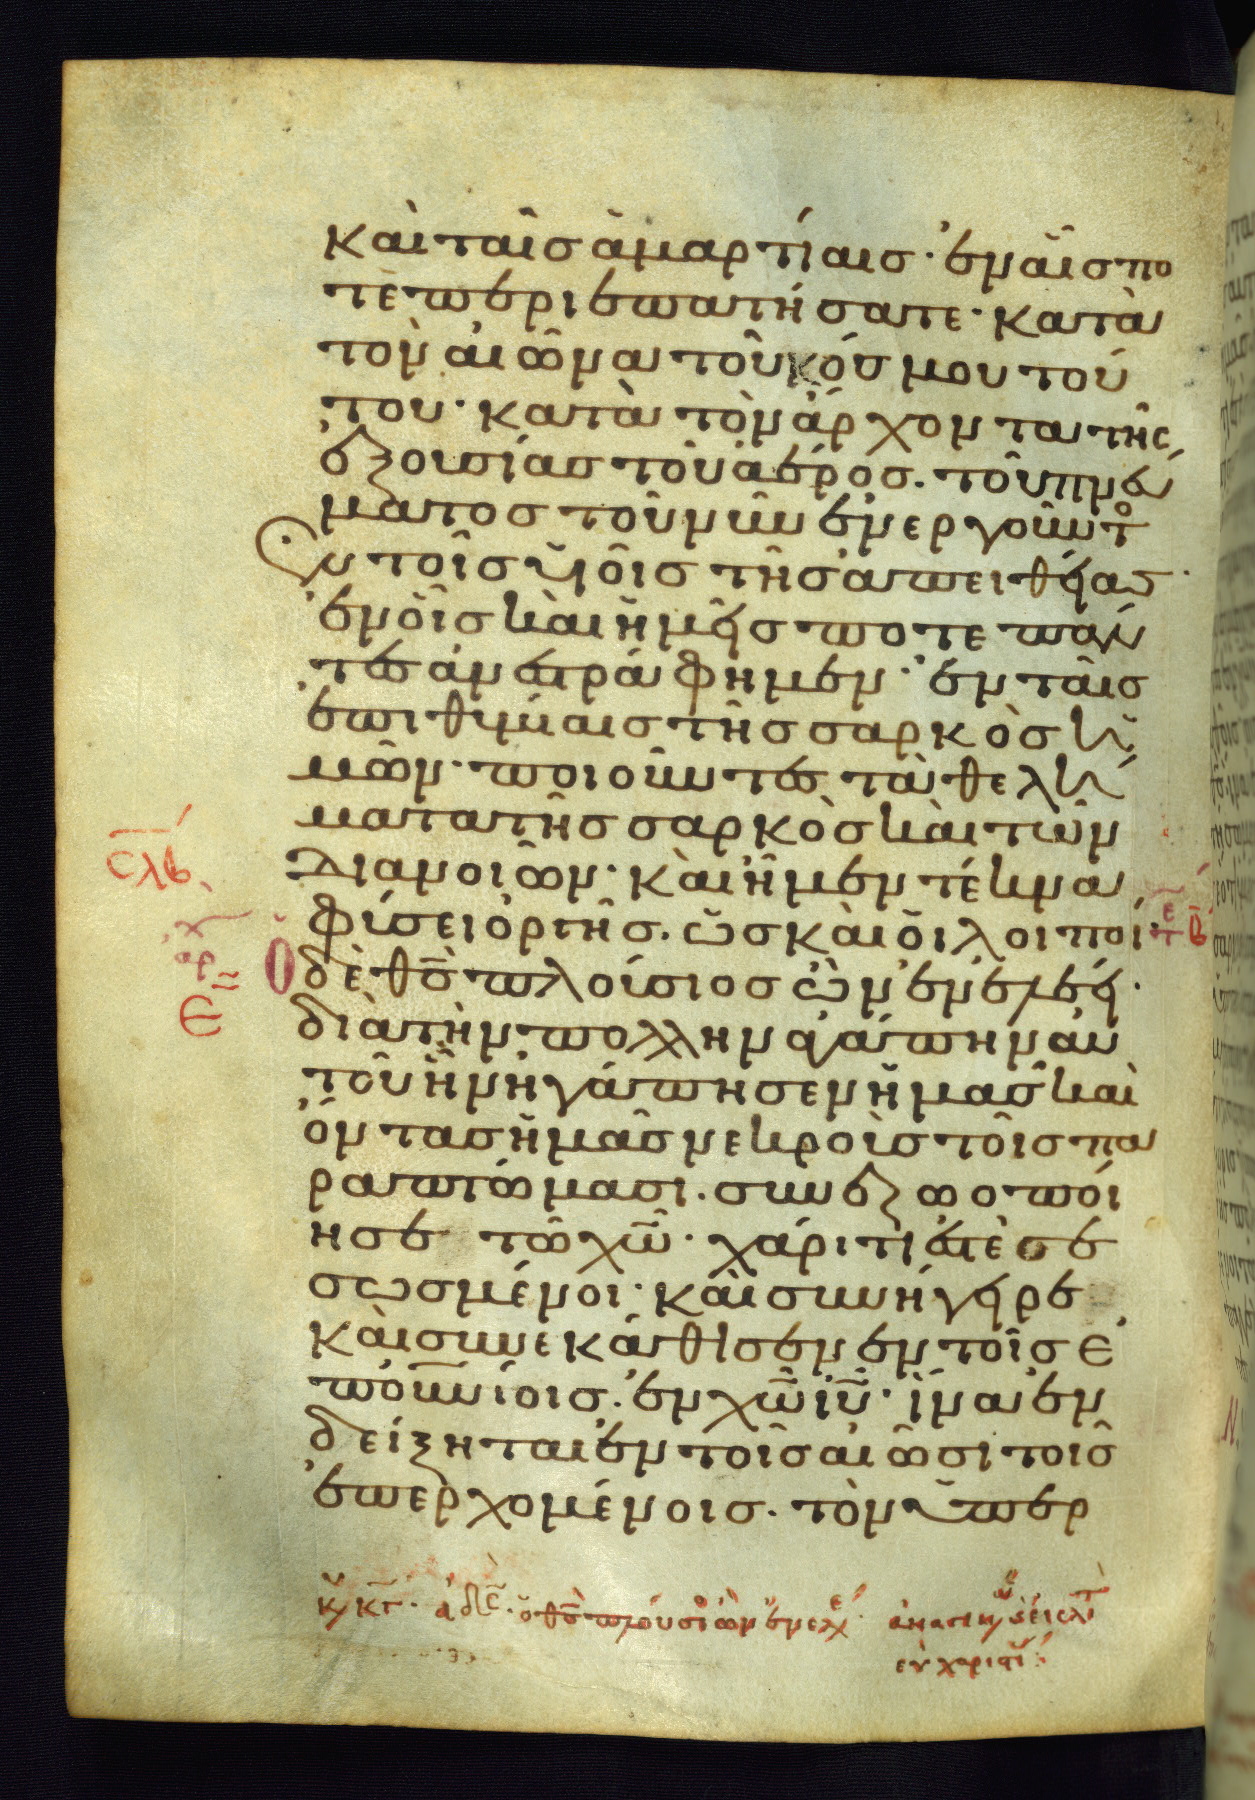 καὶ ταῖς ἁμαρτίαις· ἐν αἷς πο
τὲ περιεπατήσατε· κατὰ
τὸν αἰῶνα τοῦ κόσμου τού
του· κατὰ τὸν ἄρχοντα τῆς
ἐξουσίας τοῦ ἀέρος. τοῦ πνεύ
ματος τοῦ νῦν ἐνεργοῦντο
ἐν τοῖς υἱοῖς τῆς ἀπειθείας·
ἐν οἷς καὶ ἡμεῖς ποτε πάν
τες ἀνεστράφημεν· ἐν ταῖς
ἐπιθυμίαις τῆς σαρκὸς ἡ
μῶν· ποιοῦντες τὰ θελή
ματα τῆς σαρκὸς καὶ τῶν
διανοιῶν· καὶ ἦμεν τέκνα
φύσει ὀργῆς. ὡς καὶ οἱ λοιποί·
Ὁ δὲ θς πλούσιος ὢν ἐν ἐλέει·
διὰ τὴν πολλὴν ἀγάπην αὐ
τοῦ ἣν ἠγάπησεν ἡμᾶς καὶ
ὄντας ἡμᾶς νεκροὺς τοῖς πα
ραπτώμασι. συνεζωοποί
ησε τῷ χῶ· χάριτί ἐστε σε
σωσμένοι· καὶ συνήγειρε
καὶ συνεκάθισεν ἐν τοῖς ἐ
πουνίοις. ἐν χῶ ἰῦ· ἵνα ἐν
δείξηται ἐν τοῖς αἰῶσι τοῖς
ἐπερχομένοις. τὸν ὑπερ
σλβ
αρχ
Ε
κυ κγ· ἀδε· ὁ θς πλούσιος ὢν ἐν ἐλε·